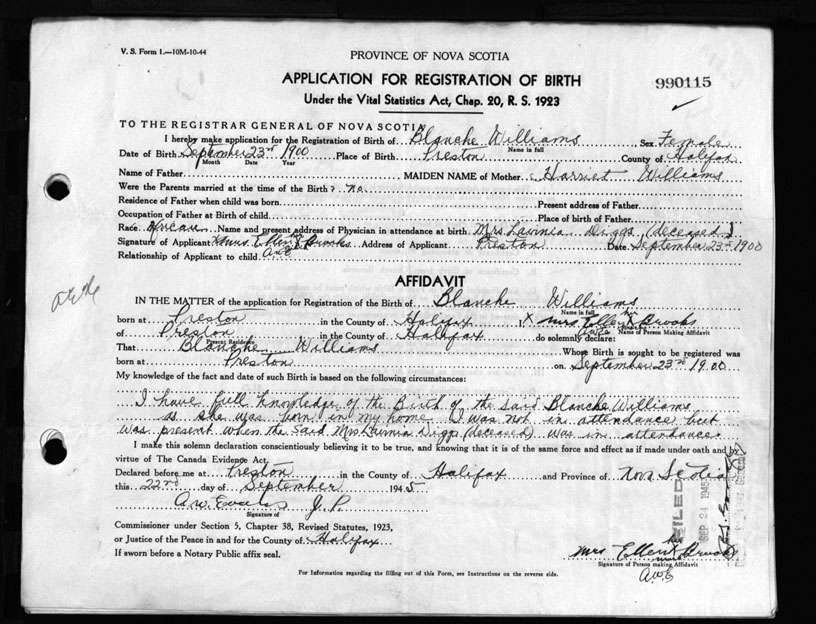 V. S. Form 1.—10M-10-44
PROVINCE OF NOVA SCOTIA
APPLICATION FOR REGISTRATION OF BIRTH
990115
Under the Vital Statistics Act, Chap. 20, R. S. 1923
TO THE REGISTRAR GENERAL OF NOVA SCOTIA
I hereby make application for the Registration of Birth of Blanche Williams Sex Female
Name in full
Date of Birth September 23rd 1900 Place of Birth Preston County of Halifax
Month Date Year
Name of Father MAIDEN NAME of Mother Harriet Williams
Were the Parents married at the time of the Birth? no
Residence of Father when child was born Present address of Father
Occupation of Father at Birth of child Place of birth of Father
Race African Name and present address of Physician in attendance at birth Mrs. Lavinia Diggs (deceased)
Signature of Applicant X Mrs. Ellen her X Brooks Address of Applicant Preston Date September 23rd 1900
Relationship of Applicant to child
AFFIDAVIT
IN THE MATTER of the application for Registration of the Birth of Blanche Williams
Name in full
born at Preston in the County of Halifax I, X Mrs Ellen her X Brooks
Name of Person Making Affidavit
of Preston in the County of Halifax do solemnly declare:
Present Residence
That Blanche Williams Whose Birth is sought to be registered was
born at Preston on September 23rd 1900
My knowledge of the fact and date of such Birth is based on the following circumstances:
I have full knowledge of the Birth of the said Blanche Williams
as she was born in my home I was not in attendance but
was present when the said Mrs Lavinia Diggs (deceased) was in attendance
I make this solemn declaration conscientiously believing it to be true, and knowing that it is of the same force and effect as if made under oath and by
virtue of The Canada Evidence Act.
Declared before me at Preston in the County of Halifax and Province of Nova Scotia
this 22nd day of September 1945
J. P.
Signature of
Commissioner under Section 5, Chapter 38, Revised Statutes, 1923,
or Justice of the Peace in and for the County of Halifax
If sworn before a Notary Public affix seal.
FILED
SEP 24 1945
Mrs Ellen her X Brooks
Signature of Person making Affidavit
For Information regarding the filling out of this Form, see Instructions on the reverse side.